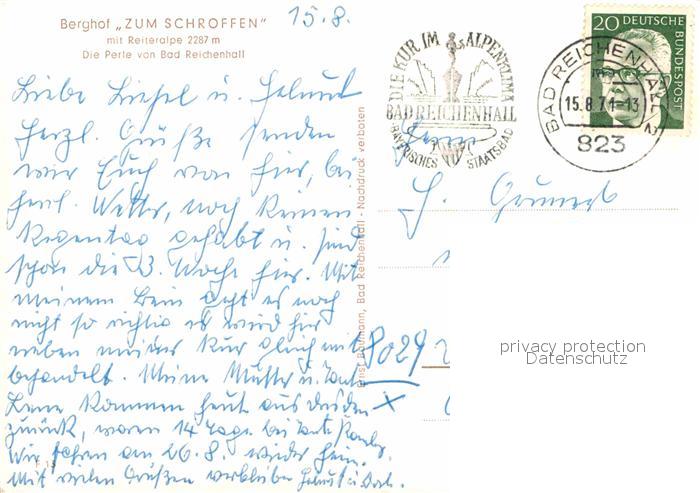 Berghof „ZUM SCHROFFEN"
mit Reiteralpe 2287 m
Die Perle von Bad Reichenhall
15.8.
Liebe Liesel u. Helmut
Herzl. Grüße senden
wir Euch von hier, bei
herrl. Wetter, noch keinen
Regentag gehabt u. sind
schon die 3. Woche hier. Mit
meinem Bein geht es noch
nicht so richtig es wird hier
neben meiner Kur gleich mit
behandelt. Meine Mutter u. Tante
kommen heut aus
zurück, waren 14 Tage bei Tante
Wir fahren am 26.8. wieder heim.
Mit vielen Grüßen verbleiben Helmut u.
Ernst Baumann, Bad Reichenhall - Nachdruck verboten
DIE KUR IM ALPENKLIMA
BAD REICHENHALL
BAYERISCHES STAATSBAD
20 DEUTSCHE BUNDESPOST
BAD REICHENHALL 2
15.8.71-13
823
Herrn
H. Grunert
8029
privacy protection
Datenschutz